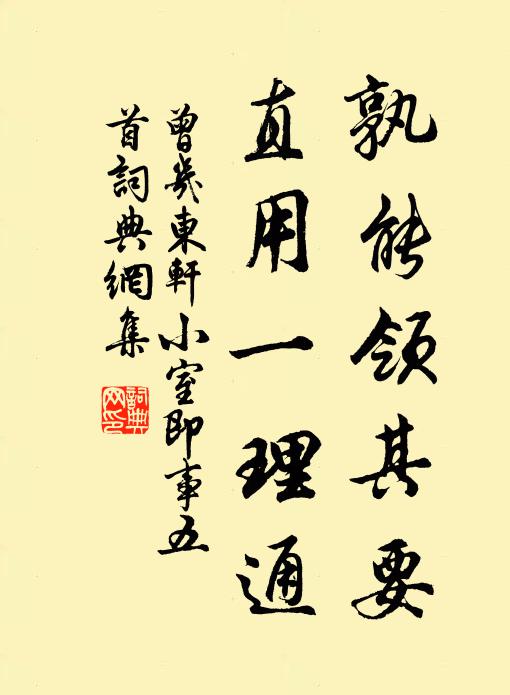 孰能領其要
直用一理通
曾幾東軒小室即事五
首詞典網集
詞典网印